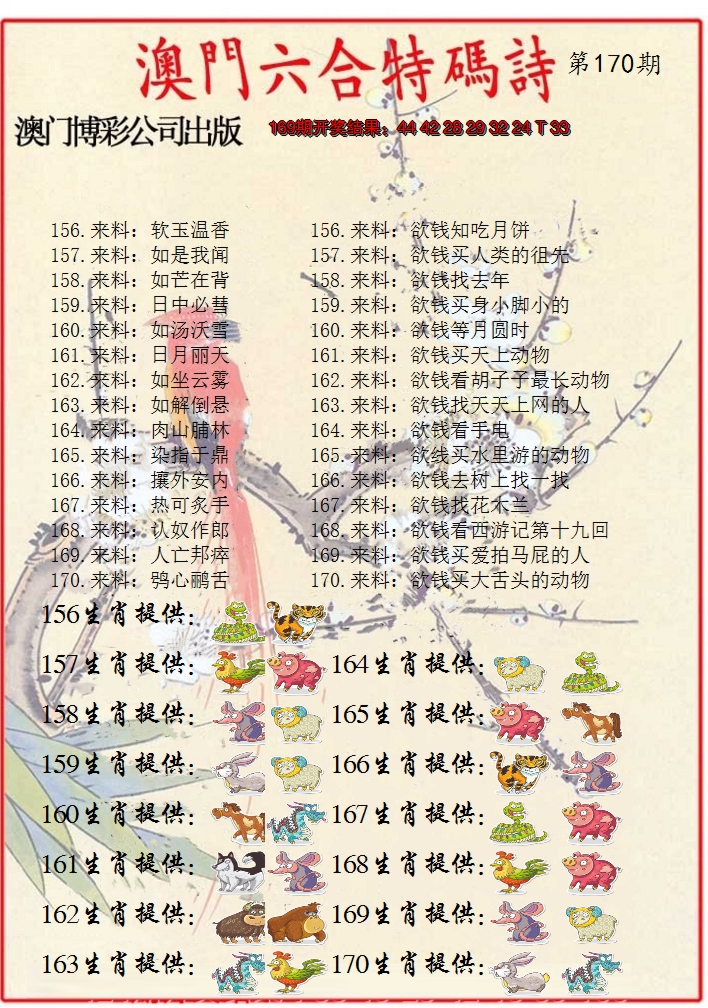 澳門六合特碼詩 第170期
澳门博彩公司出版 169期开奖结果：44 42 28 29 32 24 T 33
156.来料：软玉温香 156.来料：欲钱知吃月饼
157.来料：如是我闻 157.来料：欲钱买人类的祖先
158.来料：如芒在背 158.来料：欲钱找去年
159.来料：日中必彗 159.来料：欲钱买身小脚小的
160.来料：如汤沃雪 160.来料：欲钱等月圆时
161.来料：日月丽天 161.来料：欲钱买天上动物
162.来料：如坐云雾 162.来料：欲钱看胡子子最长动物
163.来料：如解倒悬 163.来料：欲钱找天天上网的人
164.来料：肉山脯林 164.来料：欲钱看手电
165.来料：染指于鼎 165.来料：欲线买水里游的动物
166.来料：攘外安内 166.来料：欲钱去树上找一找
167.来料：热可炙手 167.来料：欲钱找花木兰
168.来料：认奴作郎 168.来料：欲钱看西游记第十九回
169.来料：人亡邦瘁 169.来料：欲钱买爱拍马屁的人
170.来料：鸮心鹂舌 170.来料：欲钱买大舌头的动物
156生肖提供：
157生肖提供： 164生肖提供：
158生肖提供： 165生肖提供：
159生肖提供： 166生肖提供：
160生肖提供： 167生肖提供：
161生肖提供： 168生肖提供：
162生肖提供： 169生肖提供：
163生肖提供： 170生肖提供：